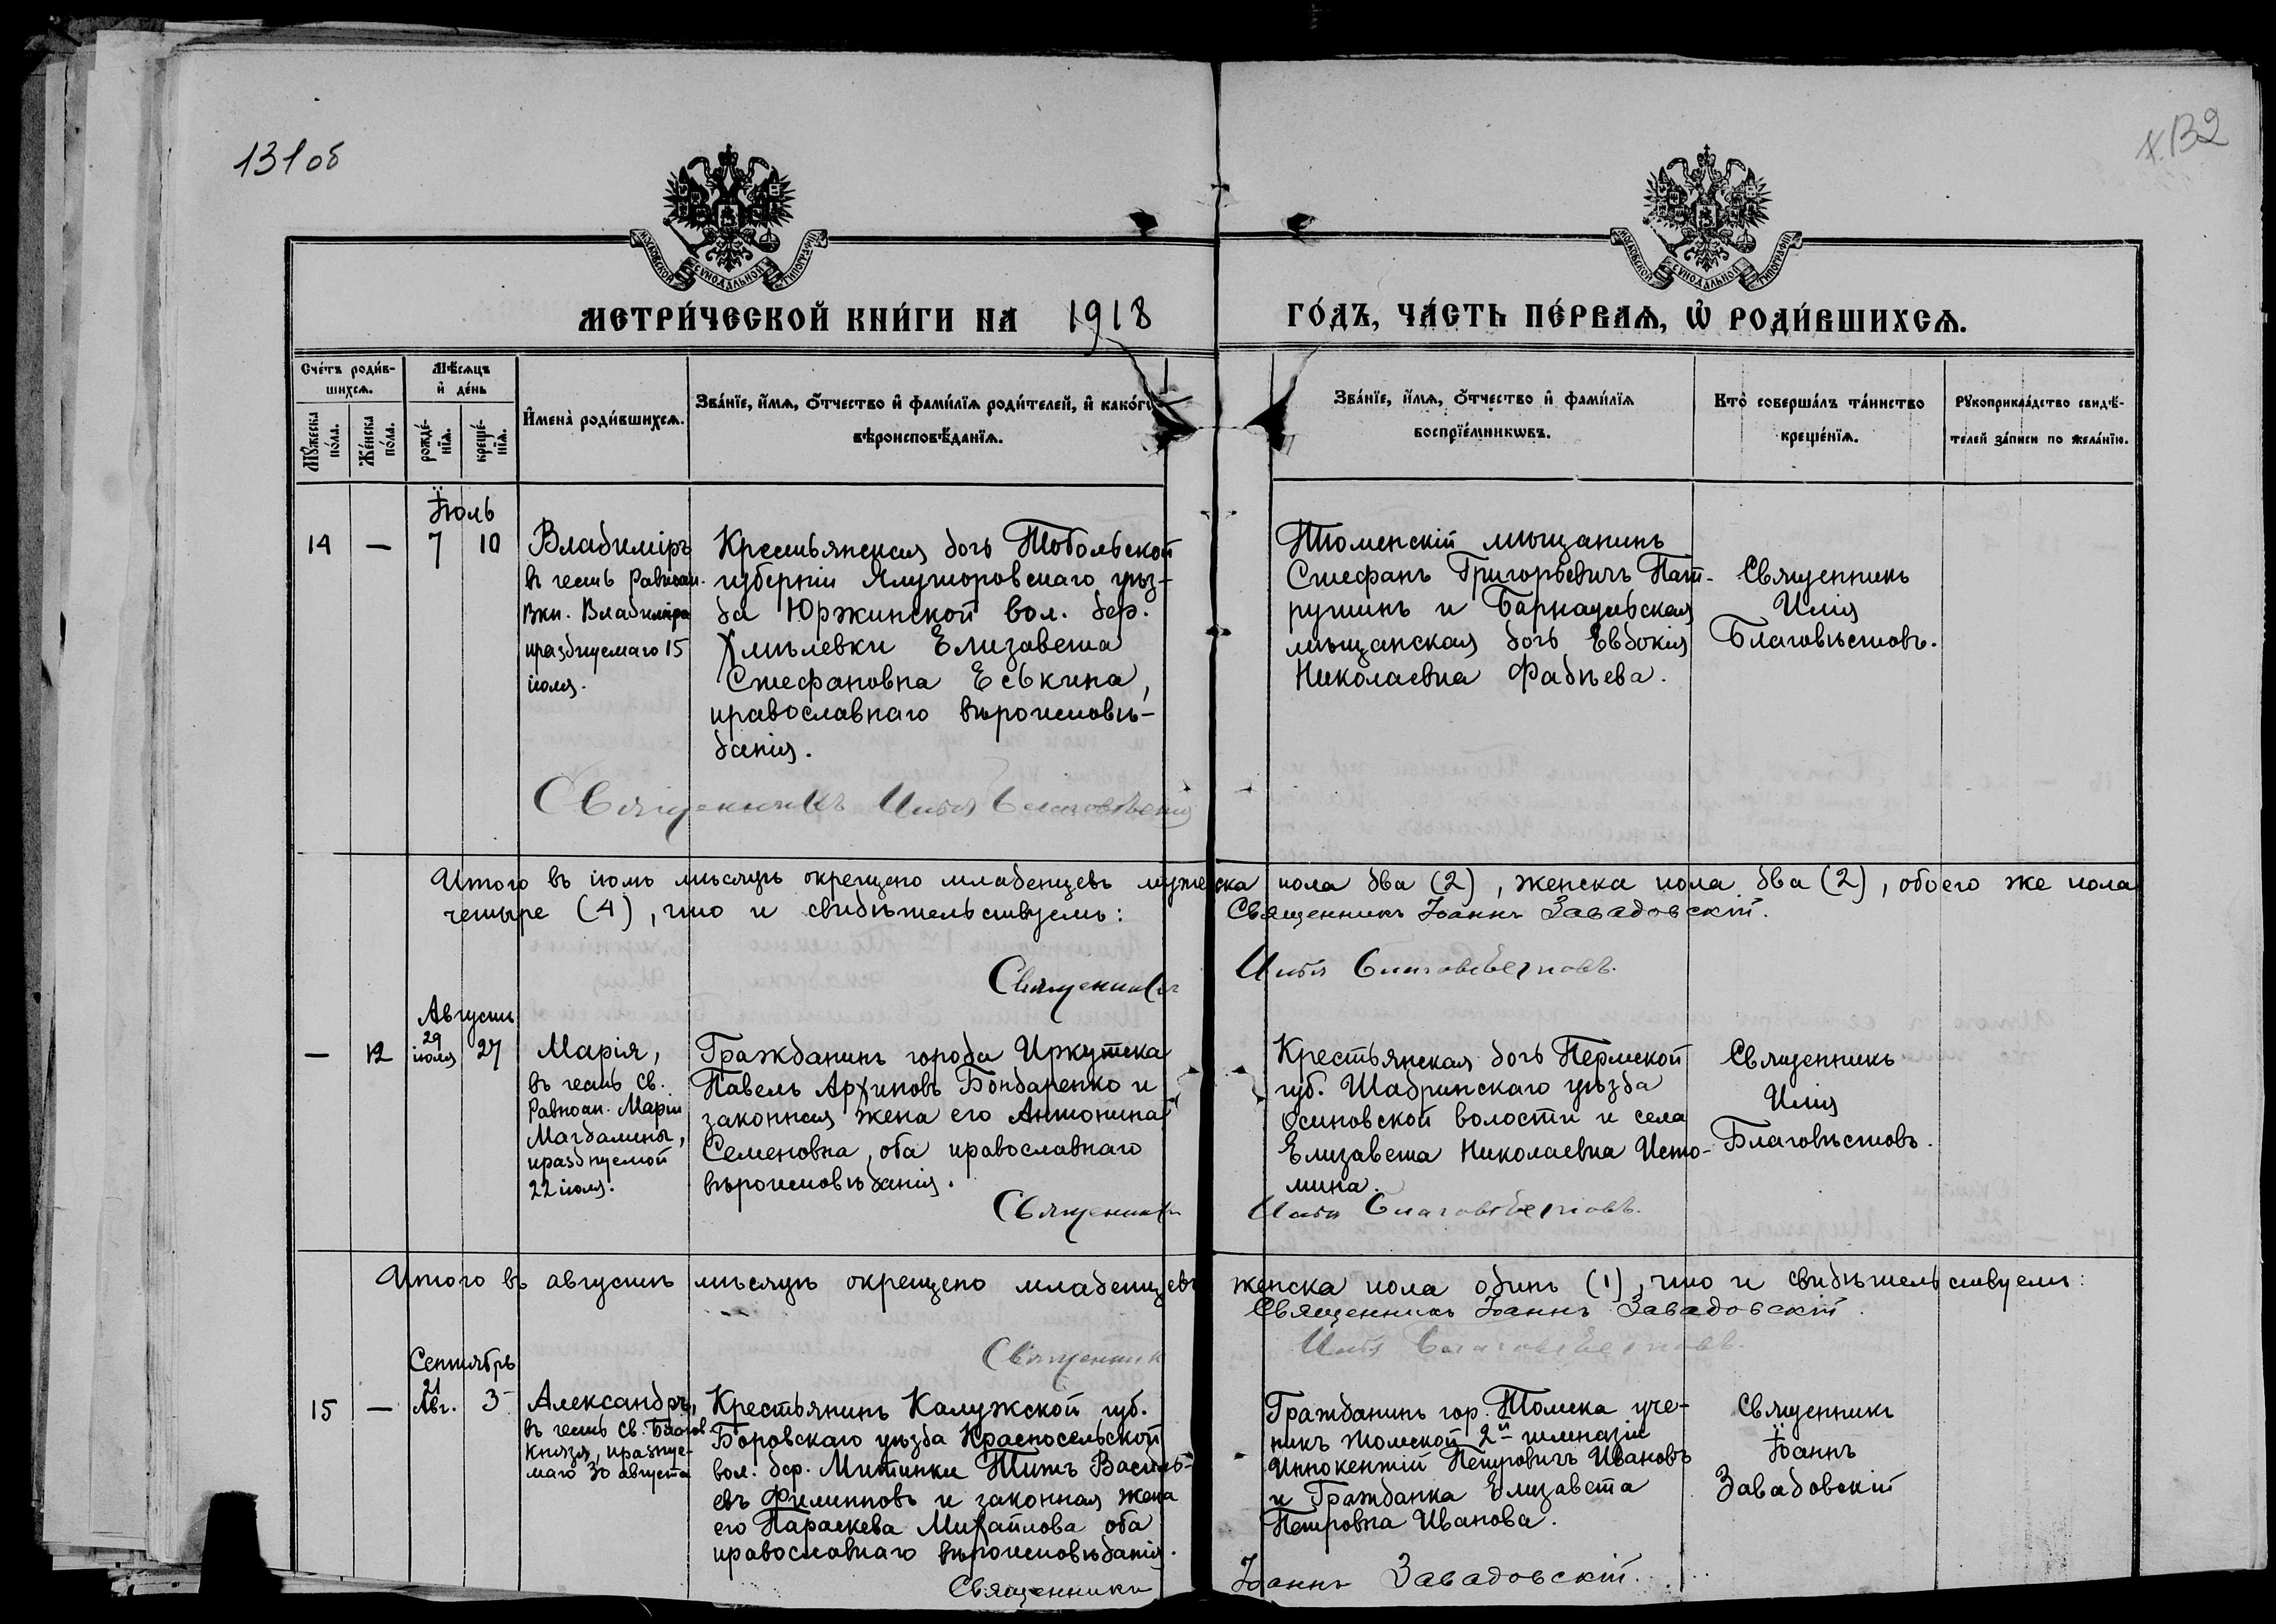 131об
132
МОСКОВСКОЙ СѴНОДАЛЬНОЙ ТИПОГРАФІИ
МОСКОВСКОЙ СѴНОДАЛЬНОЙ ТИПОГРАФІИ
МЕТРИ́ЧЕСКОЙ КНИ́ГИ НА 1918 ГО́ДЪ, ЧА́СТЬ ПЕ́РВАѦ, Ѡ҆ РОДИ́ВШИХСѦ.
Сче́тъ роди́в-
шихсѧ.
Мꙋ́жеска
по́ла.
Же́нска
по́ла.
Мѣ́сѧцъ
и҆ де́нь
рожде́-
нїѧ.
креще́-
нїѧ.
И҆мена̀ роди́вшихсѧ.
Зва́нїе, и҆́мѧ, ѻ҆́тчество и҆ фами́лїѧ роди́телей, и҆ како́гѡ
вѣроисповѣ́данїѧ.
Зва́нїе, и҆́мѧ, ѻ҆́тчество и҆ фами́лїѧ
воспрїе́мникѡвъ.
Кто̀ соверша́лъ та́инство
креще́нїѧ.
Рꙋкоприкла́дство свидѣ́-
телей за́писи по жела́нїю.
Іюль
14 — 7 10
Владиміръ
въ честь Равноап.
Вкн. Владиміра
празднуемаго 15
іюля.
Крестьянская дочь Тобольской
губерніи Ялуторовскаго уѣз-
да Юржинской вол. дер.
Хмѣлевки Елизавета
Стефановна Еськина,
православнаго вѣроисповѣ-
данія.
Тюменскій мѣщанинъ
Стефанъ Григорьевичъ Пат-
рушинъ и Барнаульская
мѣщанская дочь Евдокія
Николаевна Фадѣева.
Священникъ
Илія
Благовѣстовъ.
Священникъ Илія Благовѣстовъ
Итого въ іюлѣ мѣсяцѣ окрещено младенцевъ мужеска пола два (2), женска пола два (2), обоего же пола
четыре (4), что и свидѣтельствуемъ: Священникъ Іоаннъ Завадовскій.
Священникъ Илія Благовѣстовъ.
Августъ
— 12 29 іюля 27
Марія,
въ честь св.
Равноап. Маріи
Магдалины,
празднуемой
22 іюля.
Гражданинъ города Иркутска
Павелъ Архиповъ Бондаренко и
законная жена его Антонина
Семеновна, оба православнаго
вѣроисповѣданія.
Крестьянская дочь Пермской
губ. Шадринскаго уѣзда
Осиновской волости и села
Елизавета Николаевна Исто-
мина.
Священникъ
Илія
Благовѣстовъ.
Священникъ Илія Благовѣстовъ.
Итого въ августѣ мѣсяцѣ окрещено младенцевъ женска пола одинъ (1), что и свидѣтельствуемъ:
Священникъ Іоаннъ Завадовскій.
Священникъ Илія Благовѣстовъ.
Сентябрь
15 — 21 Авг. 3
Александръ,
въ честь Св. Благов.
Князя, празнуе-
маго 30 августа
Крестьянинъ Калужской губ.
Боровскаго уѣзда Красносельской
вол. дер. Митинки Титъ Василь-
евъ Филипповъ и законная жена
его Параскева Михайлова оба
православнаго вѣроисповѣданія.
Гражданинъ гор. Томска уче-
никъ томской 2й гимназіи
Иннокентій Петровичъ Ивановъ
и Гражданка Елизавета
Петровна Иванова.
Священникъ
Іоаннъ
Завадовскій
Священникъ Іоаннъ Завадовскій.